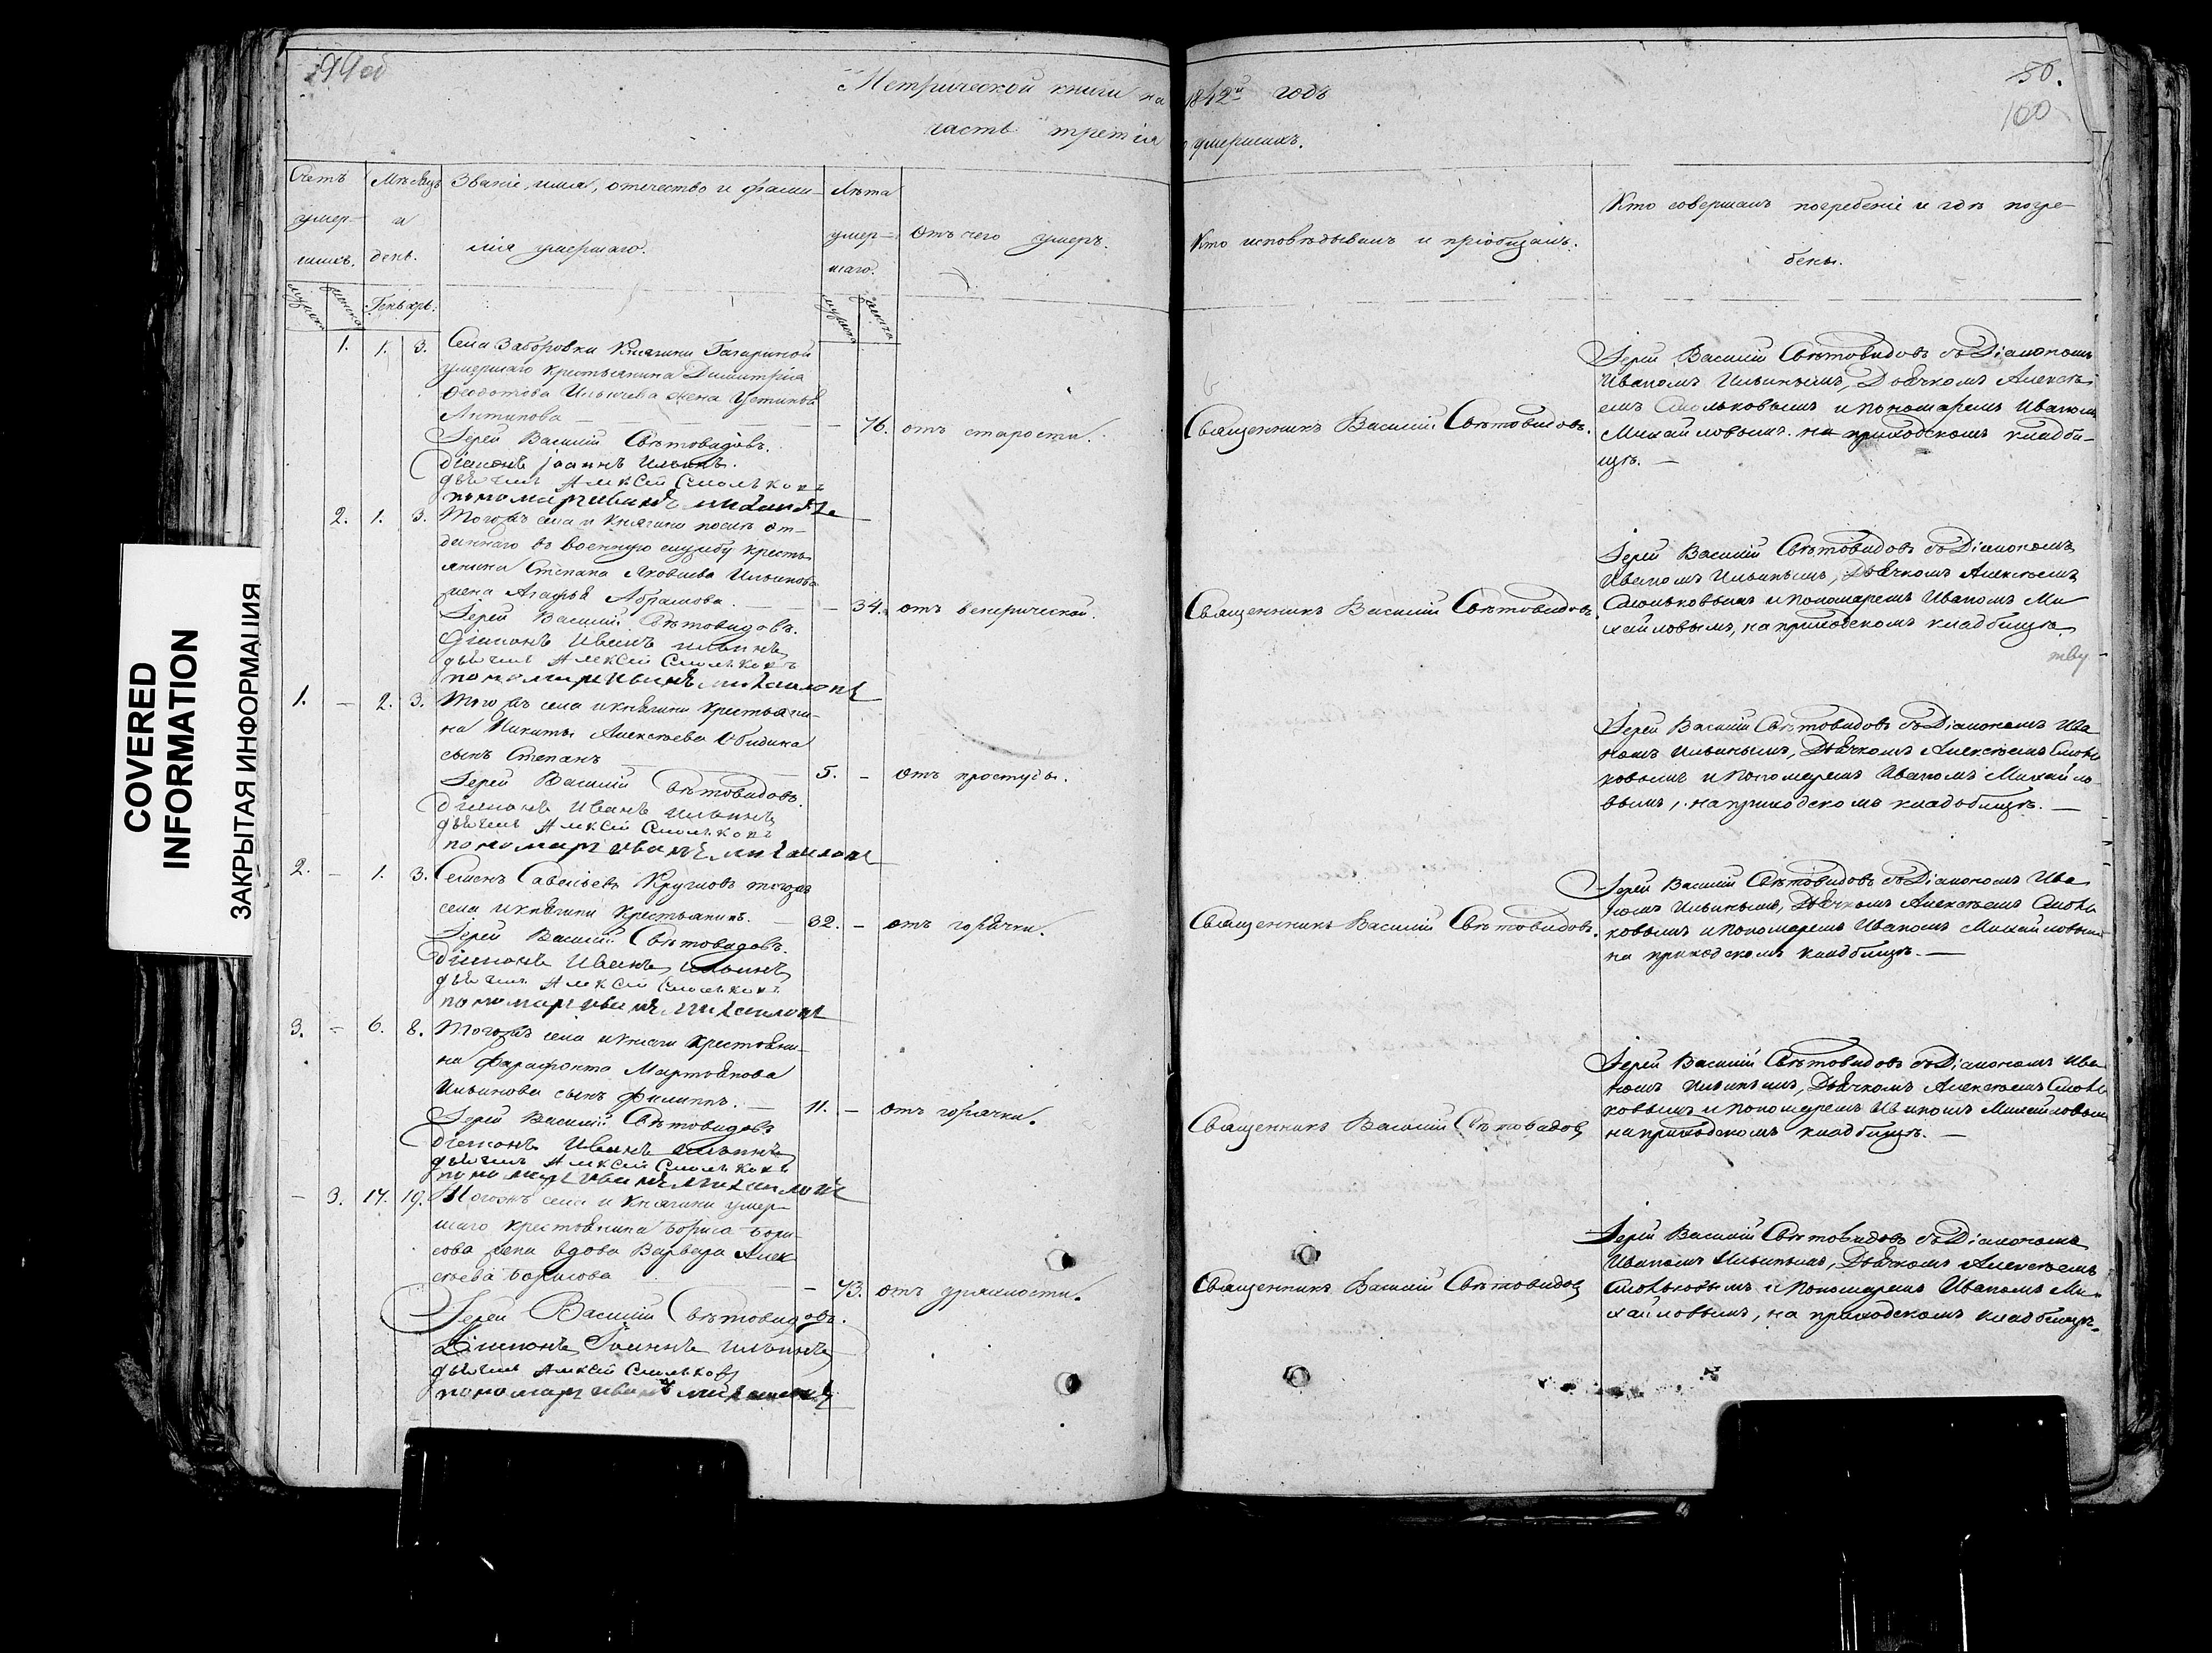 99 об
Метрической книги на 1842й годъ
50.
100
часть третія о умершихъ.
Счетъ умер-
шихъ.
Мѣсяцъ
и
день.
Званіе, имя, отечество и фами-
лія умершаго.
Лѣта
умер-
шаго.
Отъ чего умеръ.
Кто исповѣдывалъ и пріобщалъ.
Кто совершалъ погребеніе и гдѣ погре-
бены.
мужеска
женска
Генварь.
мужеска
женска
1. 1. 3.
Села Заборовки Княгини Гагариной
умершаго крестьянина Димитрія
Ѳеодотова Ильичева жена Устинья
Антипова
— 76. отъ старости.
Іерей Василій Свѣтовидовъ.
Діаконъ Іоаннъ Ильинъ.
дьячекъ Алексѣй Смольковъ
пономарь Иванъ Михайловъ
Священникъ Василій Свѣтовидовъ.
Іерей Василій Свѣтовидовъ съ Діакономъ
Иваномъ Ильинымъ, Дьячкомъ Алексѣ-
емъ Смольковымъ и пономаремъ Иваномъ
Михайловымъ. на приходскомъ кладби-
щѣ. —
2. 1. 3.
Тогожъ села и Княгини послѣ от-
даннаго въ военную службу кресть-
янина Степана Яковлева Ильинова
жена Агафья Абрамова.
— 34. отъ венерической.
Іерей Василій Свѣтовидовъ.
Діаконъ Иванъ Ильинъ
дьячекъ Алексѣй Смольковъ
пономарь Иванъ Михайловъ
Священникъ Василій Свѣтовидовъ.
Іерей Василій Свѣтовидовъ съ Діакономъ
Иваномъ Ильинымъ, Дьячкомъ Алексѣемъ
Смольковымъ и пономаремъ Иваномъ Ми
хайловымъ, на приходскомъ кладбищѣ.
1. — 2. 3.
Тогожъ села и княгини крестьяни-
на Никиты Алексѣева Обидина
сынъ Степанъ
5. — отъ простуды.
Іерей Василій Свѣтовидовъ.
Діаконъ Иванъ Ильинъ
дьячекъ Алексѣй Смольковъ
пономарь Иванъ Михайловъ
Іерей Василій Свѣтовидовъ съ Діакономъ Ива
номъ Ильинымъ, Дьячкомъ Алексѣемъ Смоль
ковымъ и Пономаремъ Иваномъ Михайло-
вымъ, на приходскомъ кладбищѣ. —
2. — 1. 3.
Семенъ Савельевъ Кругловъ тогожъ
села и княгини Крестьянинъ.
32. — отъ горячки.
Іерей Василій Свѣтовидовъ.
Діаконъ Иванъ Ильинъ
дьячекъ Алексѣй Смольковъ
пономарь Иванъ Михайловъ
Священникъ Василій Свѣтовидовъ.
Іерей Василій Свѣтовидовъ съ Діакономъ Ива
номъ Ильинымъ, Дьячкомъ Алексѣемъ Смоль
ковымъ и пономаремъ Иваномъ Михайловымъ
на приходскомъ кладбищѣ. —
3. — 6. 8.
Тогожъ села и княгини Крестьяни-
на Фарафонта Мартьянова
Ильинова сынъ Филиппъ. —
11. — отъ горячки.
Іерей Василій Свѣтовидовъ
Діаконъ Иванъ Ильинъ
дьячекъ Алексѣй Смольковъ
пономарь Иванъ Михайловъ
Священникъ Василій Свѣтовидовъ
Іерей Василій Свѣтовидовъ съ Діакономъ Ива
номъ Ильинымъ, Дьячкомъ Алексѣемъ Смоль
ковымъ и пономаремъ Иваномъ Михайловымъ
на приходскомъ кладбищѣ. —
— 3. 17. 19.
Тогожъ села и Княгини умер-
шаго крестьянина Бориса Бори
сова жена вдова Варвара Алек
сѣева Борисова
— 73. отъ дряхлости.
Іерей Василій Свѣтовидовъ.
Діаконъ Іоаннъ Ильинъ
дьячекъ Алексѣй Смольковъ
пономарь Иванъ Михайловъ
Священникъ Василій Свѣтовидовъ
Іерей Василій Свѣтовидовъ съ Діакономъ
Иваномъ Ильинымъ, Дьячкомъ Алексѣемъ
Смольковымъ и Пономаремъ Иваномъ Ми-
хайловымъ, на приходскомъ кладбищѣ.
COVERED
INFORMATION
ЗАКРЫТАЯ ИНФОРМАЦИЯ